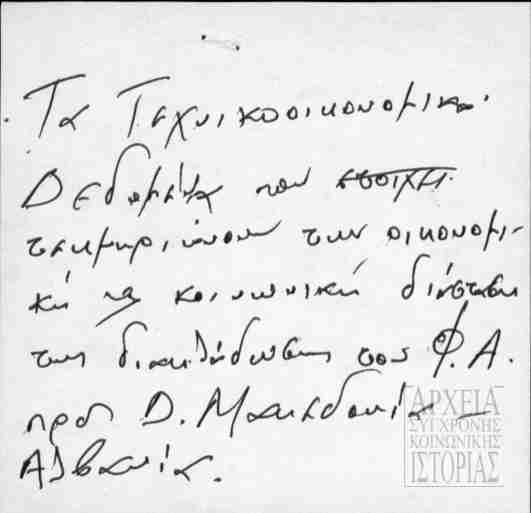 Τα Τεχνικοοικονομικά
Δεδομένα που στοιχει
τεκμηριώνουν την οικονομι-
κή και κοινωνική διάσταση
της διακλάδωσης του Φ.Α.
προς Δ. Μακεδονία –
Αλβανία.
ΑΡΧΕΙΑ
ΣΥΓΧΡΟΝΗΣ
ΚΟΙΝΩΝΙΚΗΣ
ΙΣΤΟΡΙΑΣ